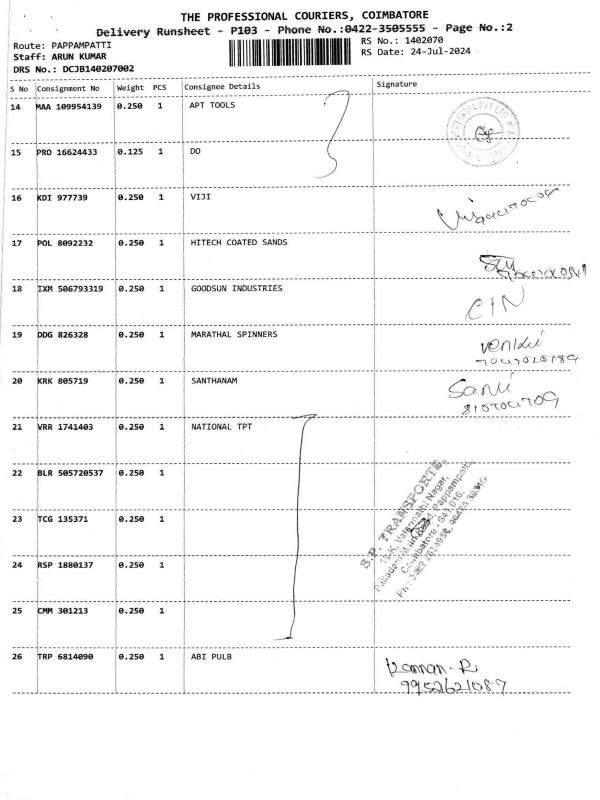 THE PROFESSIONAL COURIERS, COIMBATORE
Delivery Runsheet - P103 - Phone No.:0422-3505555 - Page No.:2
Route: PAPPAMPATTI
Staff: ARUN KUMAR
DRS No.: DCJB140207002
RS No.: 1402070
RS Date: 24-Jul-2024
S No Consignment No Weight PCS Consignee Details Signature
14 MAA 109954139 0.250 1 APT TOOLS
15 PRO 16624433 0.125 1 DO
16 KDI 977739 0.250 1 VIJI
17 POL 8092232 0.250 1 HITECH COATED SANDS
18 IXM 506793319 0.250 1 GOODSUN INDUSTRIES
CIN
19 DDG 826328 0.250 1 MARATHAL SPINNERS
20 KRK 805719 0.250 1 SANTHANAM
21 VRR 1741403 0.250 1 NATIONAL TPT
22 BLR 505720537 0.250 1
23 TCG 135371 0.250 1
24 RSP 1880137 0.250 1
25 CMM 301213 0.250 1
S.P. TRANSPORTS
Nagar,
Pappampatti
Coimbatore - 641 016.
26 TRP 6814090 0.250 1 ABI PULB
Kannan. R
9952621087